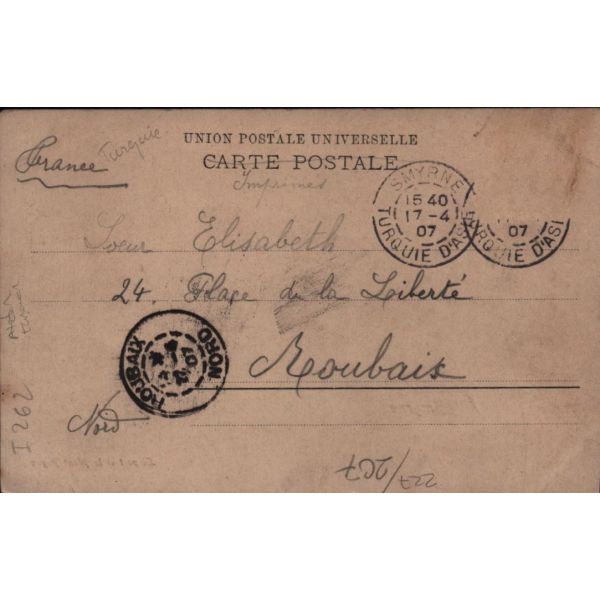 France
Turquie
UNION POSTALE UNIVERSELLE
CARTE POSTALE
Imprimés
SMYRNE
15 40
17-4
07
TURQUIE D'ASIE
07
TURQUIE D'ASI
Soeur Elisabeth
24. Place de la Liberté
Roubaix
Nord
ROUBAIX
NORD
07
I 262
227/267